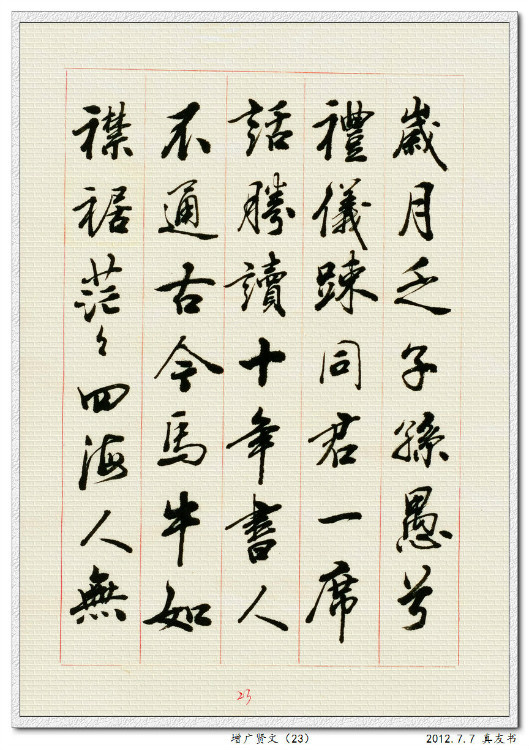 歲月乏子孫愚兮
禮儀踈同君一席
話勝讀十年書人
不通古今馬牛如
襟裾茫々四海人無
23
增广贤文（23）
2012.7.7 真友书